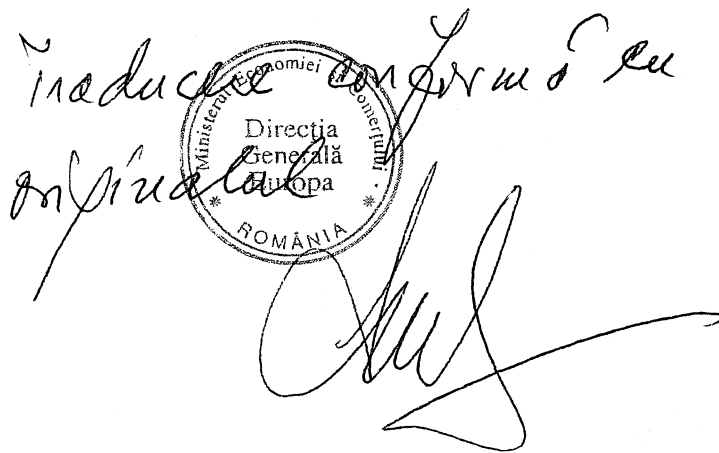 Traducere conformă cu
originalul
Ministerul Economiei și Comerțului
Direcția
Generală
Europa
ROMÂNIA